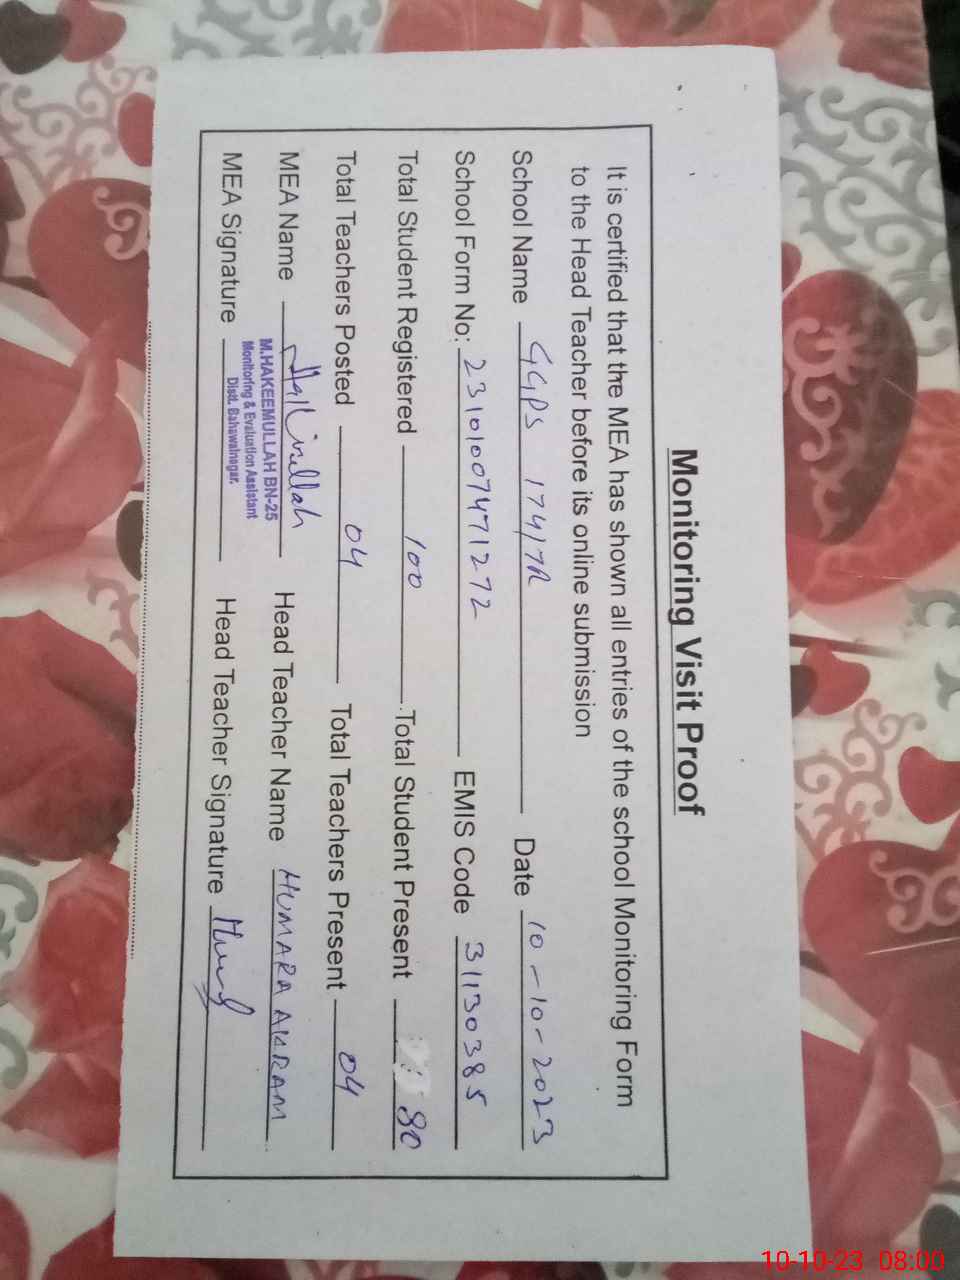 Monitoring Visit Proof
It is certified that the MEA has shown all entries of the school Monitoring Form
to the Head Teacher before its online submission
School Name GGPS 174/7R Date 10-10-2023
School Form No: 23101007471272 EMIS Code 31130385
Total Student Registered 100 Total Student Present 80
Total Teachers Posted 04 Total Teachers Present 04
MEA Name Head Teacher Name HUMARA AKRAM
M.HAKEEMULLAH BN-25
Monitoring & Evaluation Assistant
Distt. Bahawalnagar.
MEA Signature Head Teacher Signature
10-10-23 08:00